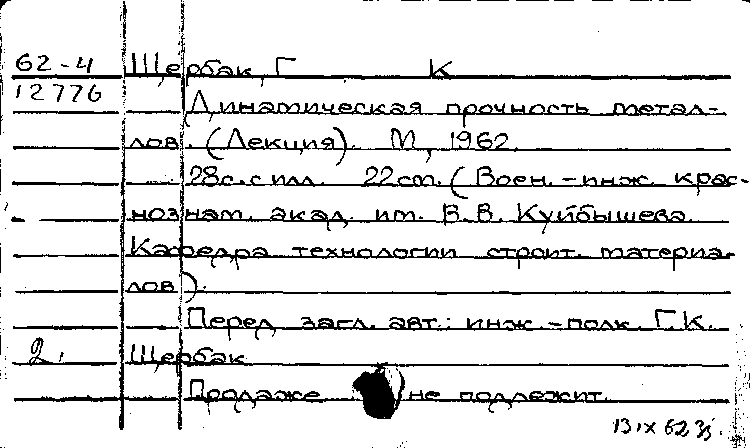 62-4 Щербак, Г К
12776
Динамическая прочность метал-
лов. (Лекция). М., 1962.
28с. с илл. 22см. (Воен.-инж. крас-
нознам. акад. им. В.В. Куйбышева.
Кафедра технологии строит. материа-
лов).
Перед загл. авт.: инж.-полк. Г.К.
2. Щербак
Продаже не подлежит.
13 IX 62